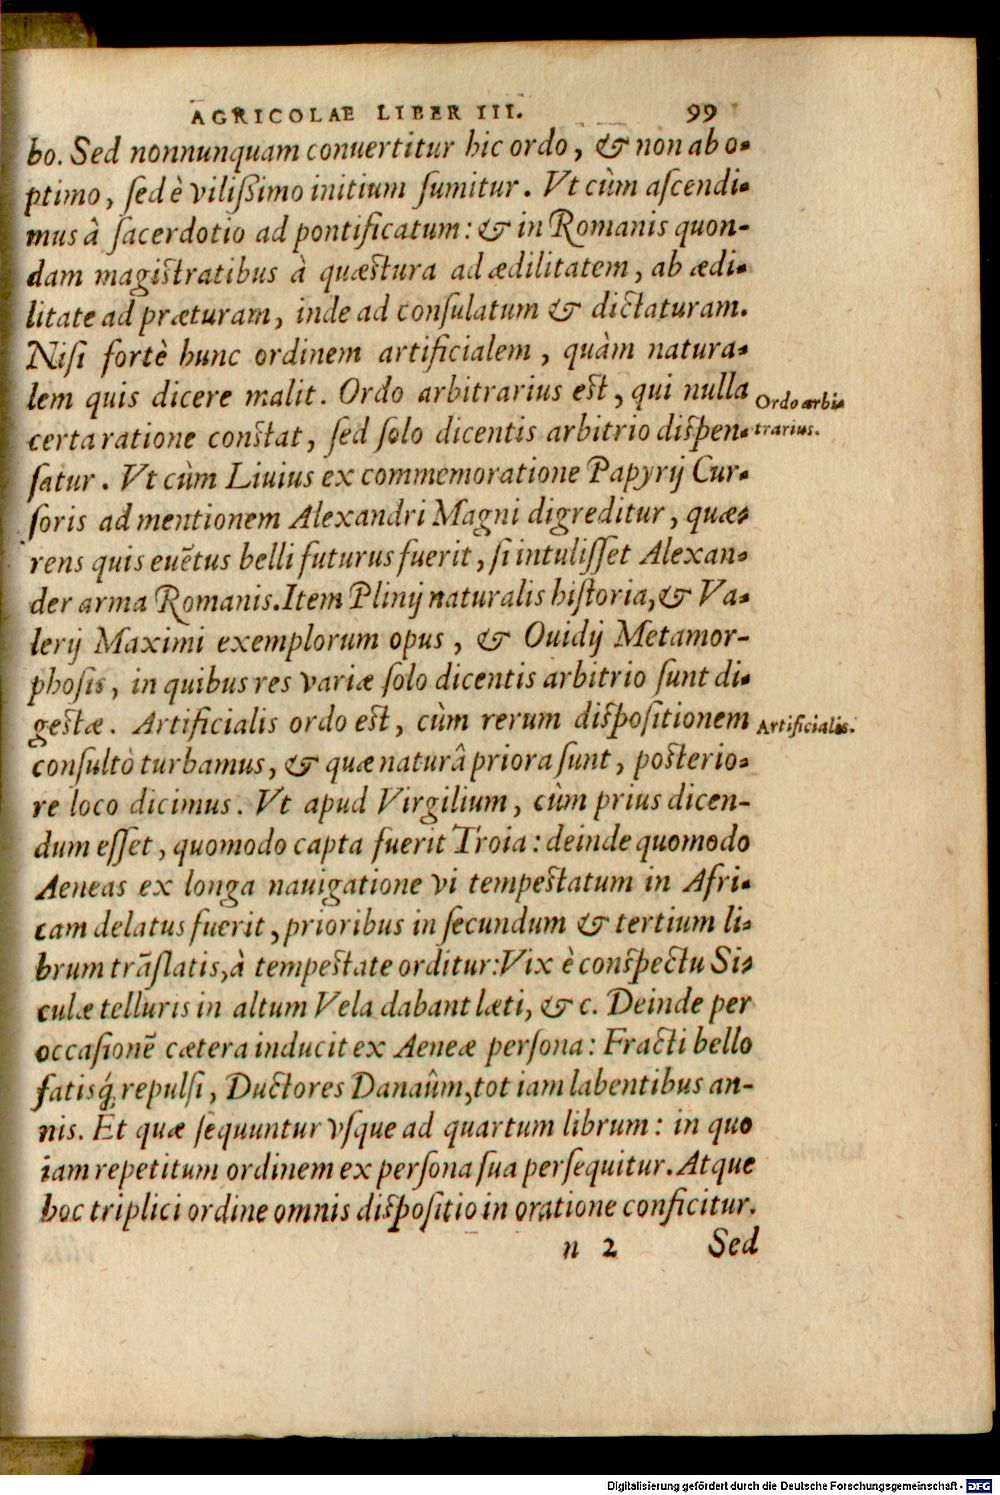 AGRICOLAE LIBER III. 99
bo. Sed nonnunquam conuertitur hic ordo, & non ab o-
ptimo, ſed è viliſsimo initium ſumitur. Vt cùm aſcendi-
mus à ſacerdotio ad pontificatum: & in Romanis quon-
dam magiſtratibus à quæſtura ad ædilitatem, ab ædi-
litate ad præturam, inde ad conſulatum & dictaturam.
Niſi fortè hunc ordinem artificialem, quàm natura-
lem quis dicere malit. Ordo arbitrarius eſt, qui nulla
Ordo arbi-
certa ratione conſtat, ſed ſolo dicentis arbitrio diſpen-
trarius.
ſatur. Vt cùm Liuius ex commemoratione Papyrij Cur-
ſoris ad mentionem Alexandri Magni digreditur, quæ-
rens quis euẽtus belli futurus fuerit, ſi intuliſſet Alexan-
der arma Romanis. Item Plinij naturalis hiſtoria, & Va-
lerij Maximi exemplorum opus, & Ouidij Metamor-
phoſis, in quibus res variæ ſolo dicentis arbitrio ſunt di-
geſtæ. Artificialis ordo eſt, cùm rerum diſpoſitionem
Artificialis.
conſultò turbamus, & quæ naturâ priora ſunt, poſterio-
re loco dicimus. Vt apud Virgilium, cùm prius dicen-
dum eſſet, quomodo capta fuerit Troia: deinde quomodo
Aeneas ex longa nauigatione vi tempeſtatum in Afri-
cam delatus fuerit, prioribus in ſecundum & tertium li-
brum trãſlatis, à tempeſtate orditur: Vix è conſpectu Si-
culæ telluris in altum Vela dabant læti, & c. Deinde per
occaſionẽ cætera inducit ex Aeneæ perſona: Fracti bello
fatisq́; repulſi, Ductores Danaûm, tot iam labentibus an-
nis. Et quæ ſequuntur vſque ad quartum librum: in quo
iam repetitum ordinem ex perſona ſua perſequitur. Atque
hoc triplici ordine omnis diſpoſitio in oratione conficitur.
n 2 Sed
Digitalisierung gefördert durch die Deutsche Forschungsgemeinschaft - DFG